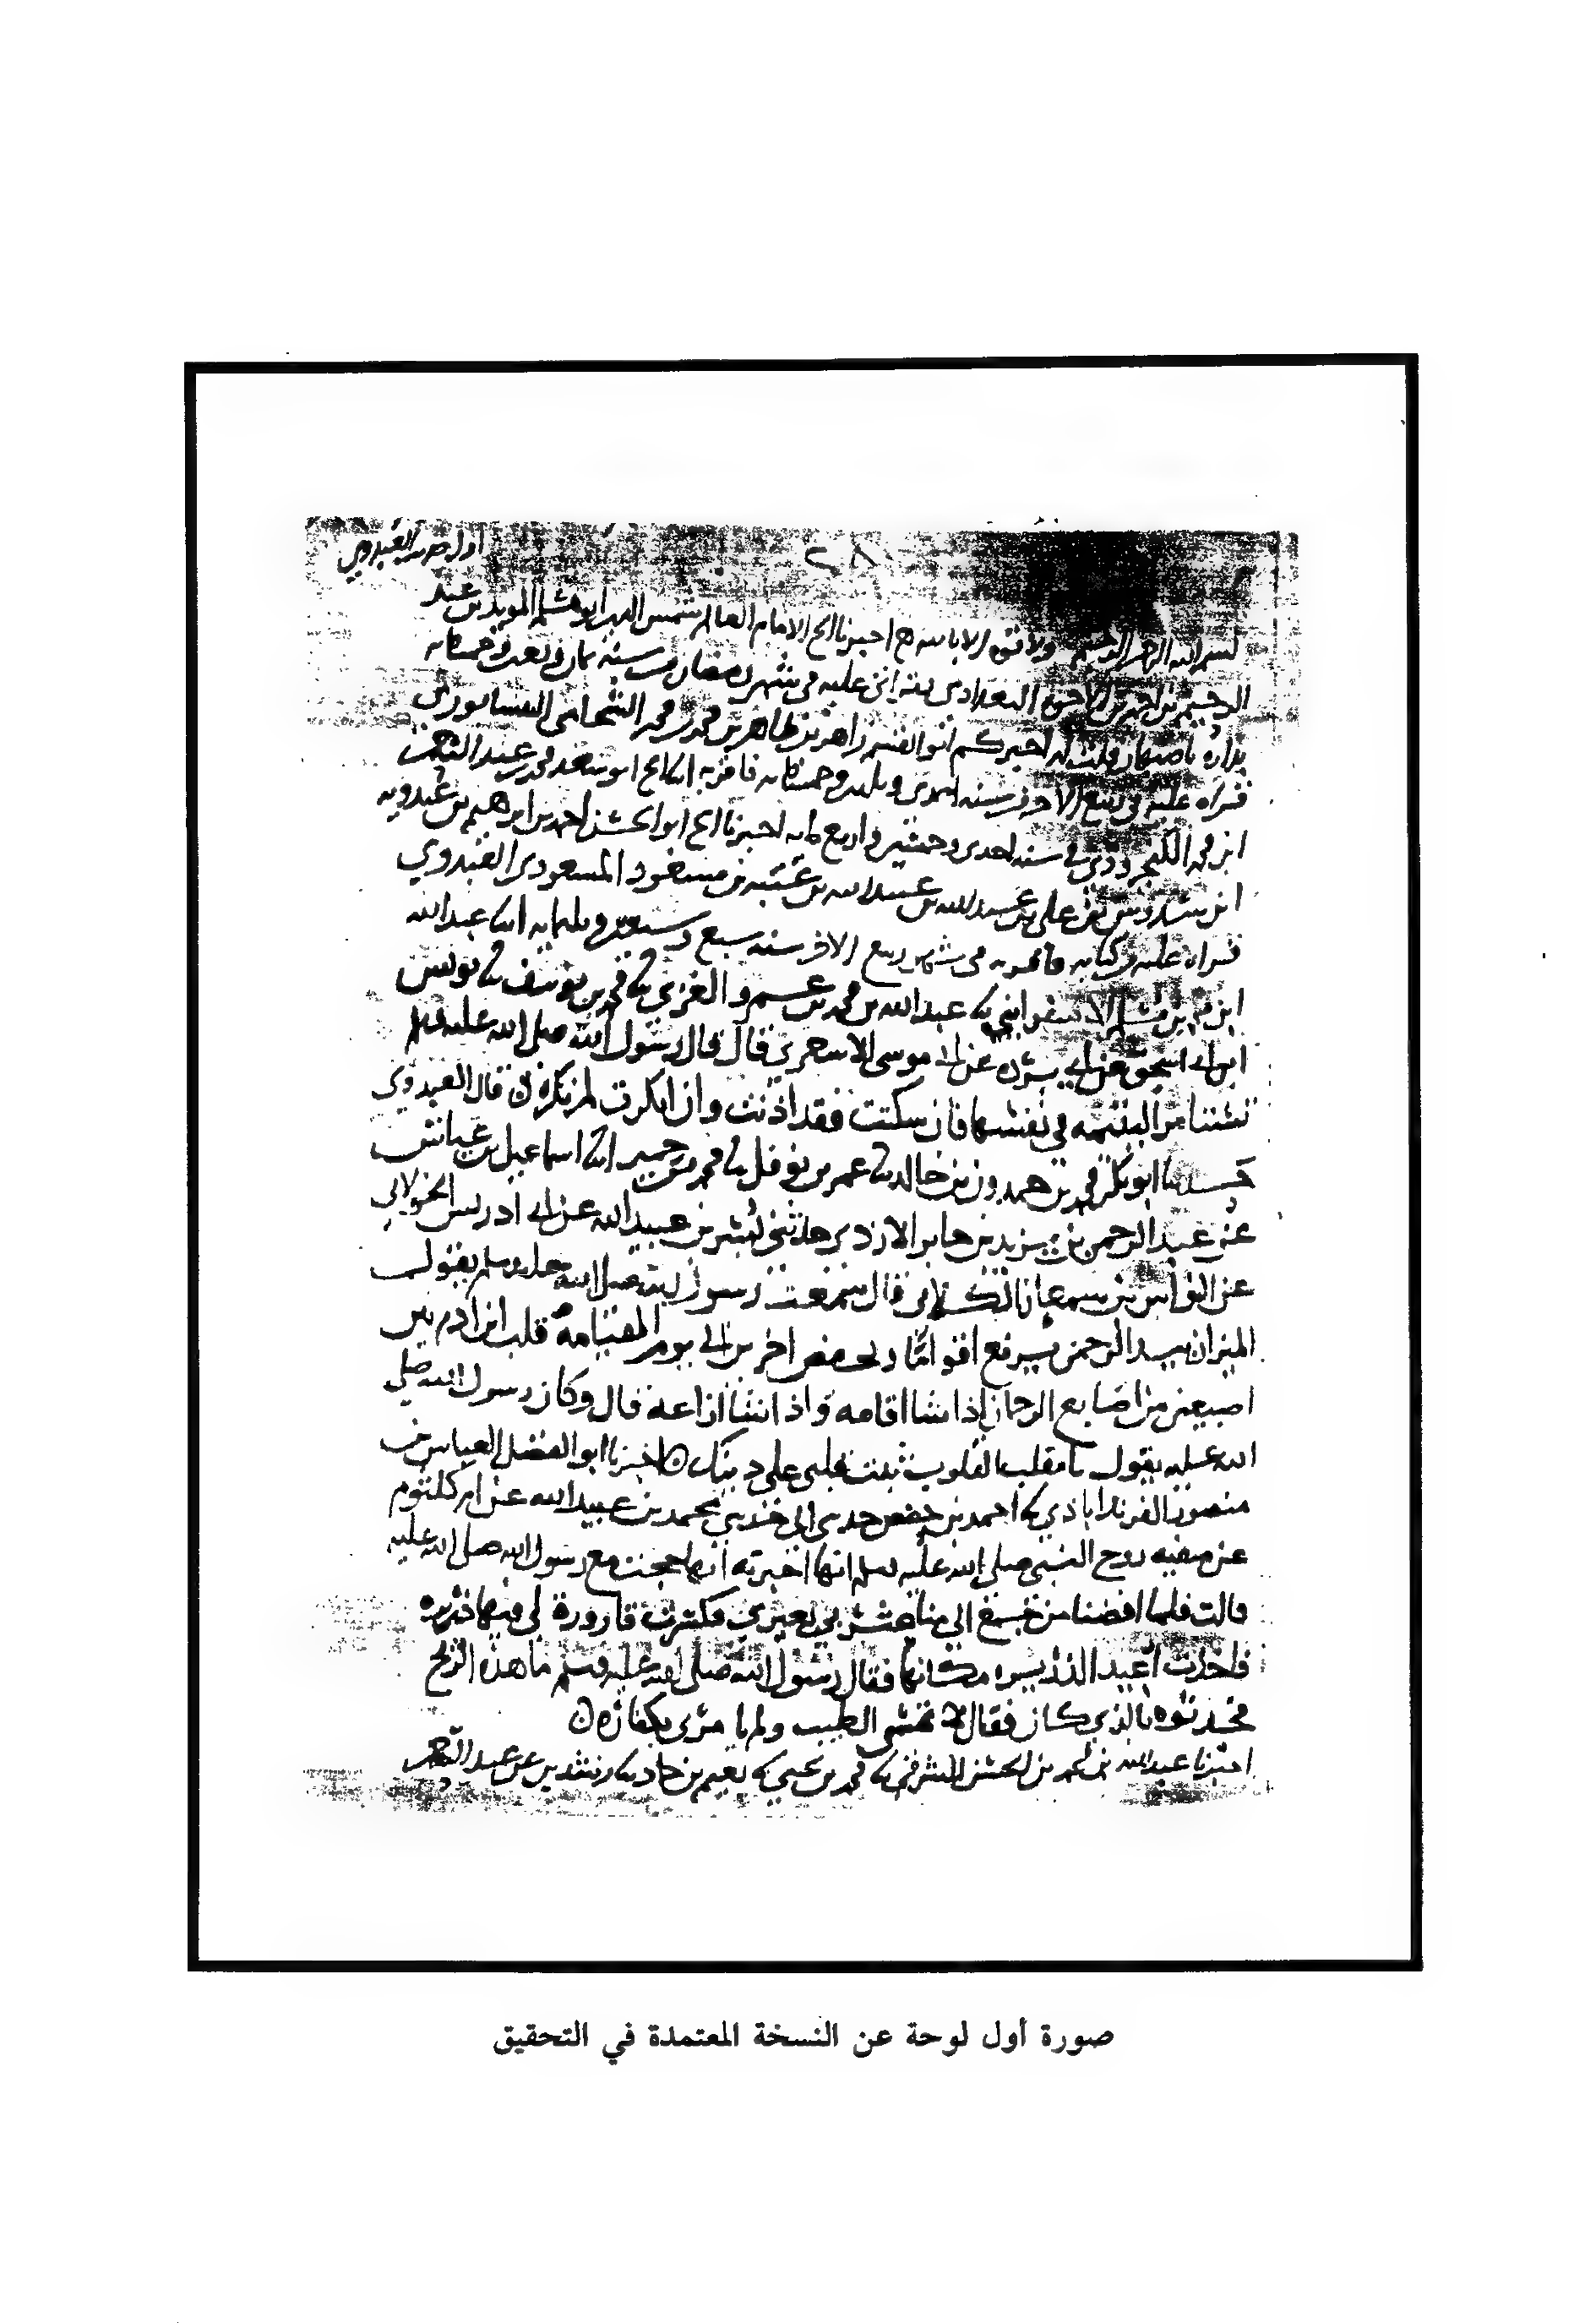 اول حديث العبدوي
٢٨
بسم الله الرحمن الرحيم ولا قوة الا بالله اخبرنا الشيخ الامام العالم شمس الدين ابو هشام المويد بن عبد
الرحيم بن احمد بن الاخوة البغدادي بقراءتي عليه في شهر رمضان من سنة ثمان وتسعين وخمسمائة
بداره باصبهان قلت له اخبركم ابو القسم زاهر بن طاهر بن محمد بن محمد الشحامي النيسابوري
قراه عليه في ربيع الاخر سنه احدى وثلثين وخمسمائة فاقر به انا الشيخ ابو سعد محمد بن عبد الرحمن
ابن محمد الكنجروذي في سنه احدى وخمسين واربع مائة اخبرنا الشيخ ابو الحسن احمد بن ابرهيم بن عبدويه
ابن سدوس بن علي بن عبد الله بن عبيد الله بن عتبه بن مسعود المسعودي العبدوي
قراه عليه من كتابه في شهر ربيع الاخر سنه سبع وسبعين وثلثمائة انا عبد الله
ابن محمد بن مسلم الاسفرايني نا عبد الله بن محمد بن عمرو الغزي نا محمد بن يوسف نا يونس
ابن ابي اسحق عن ابي بردة عن ابي موسى الاشعري قال قال رسول الله صلى الله عليه وسلم
تستامر اليتيمه في نفسها فان سكتت فقد اذنت وان انكرت لم تكره ن قال العبدوي
حدثنا ابو بكر محمد بن حمدون بن خالد نا عمر بن نوفل نا محمد بن حمير انا اسماعيل بن عياش
عن عبد الرحمن بن يزيد بن جابر الازدي حدثني بسر بن عبيد الله عن ابي ادريس الخولاني
عن النواس بن سمعان الكلابي قال سمعت رسول الله صلى الله عليه وسلم يقول
الميزان بيد الرحمن يرفع اقواما ويخفض اخرين الى يوم القيامة قلب ابن ادم بين
اصبعين من اصابع الرحمان اذا شا اقامه واذا شا ازاغه قال وكان رسول الله صلى
الله عليه يقول يا مقلب القلوب ثبت قلبي على دينك ن اخبرنا ابو الفضل العباس بن
منصور الفرنداباذي نا احمد بن حفص حدثني ابي حدثني محمد بن عبيد الله عن ام كلثوم
عن صفيه زوج النبي صلى الله عليه وسلم انها اخبرته انها حجت مع رسول الله صلى الله عليه
قالت فلما افضنا من جمع الى منا عثر بي بعيري فكسرت قارورة لي فيها ذريره
فاخذت اعبد الذريره مكانها فقال رسول الله صلى الله عليه وسلم ما هذه الريح
فحدثوه بالذي كان فقال لا تمسي الطيب ولم يامرني بكفارة ن
اخبرنا عبد الله بن احمد بن الحسن الشرقي نا محمد بن يحيى نا نعيم بن حماد نا رشدين عن عبد الرحمن
صورة أول لوحة عن النسخة المعتمدة في التحقيق